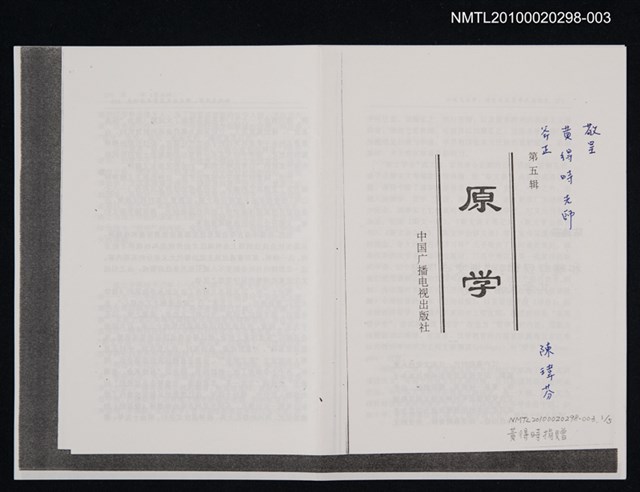 NMTL20100020298-003
敬呈
黃得時老師
斧正
第五辑
原学
中国广播电视出版社
陳瑋芬
NMTL20100020298-003, 1/3
黃得時捐贈